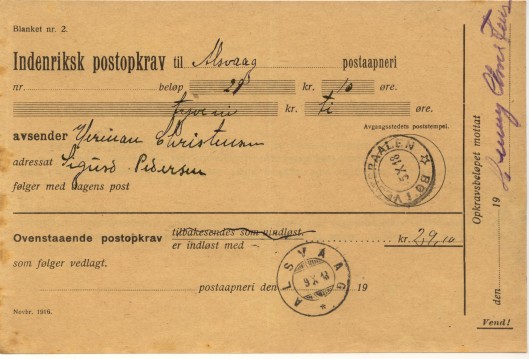 Blanket nr. 2.
Indenriksk postopkrav til Alsvaag postaapneri
nr. beløp 29 kr. 10 øre.
kr. ti øre.
avsender Herman Christensen
Avgangsstedets poststempel.
adressat Sigurd Pedersen
følger med dagens post
BØ I VESTERAALEN
5 X 18
Ovenstaaende postopkrav tilbakesendes som uindløst.
er indløst med kr. 29,10
som følger vedlagt.
ALSVAAG
postaapneri den 19
Novbr. 1916.
Opkravsbeløpet mottat
den 19
Vend!